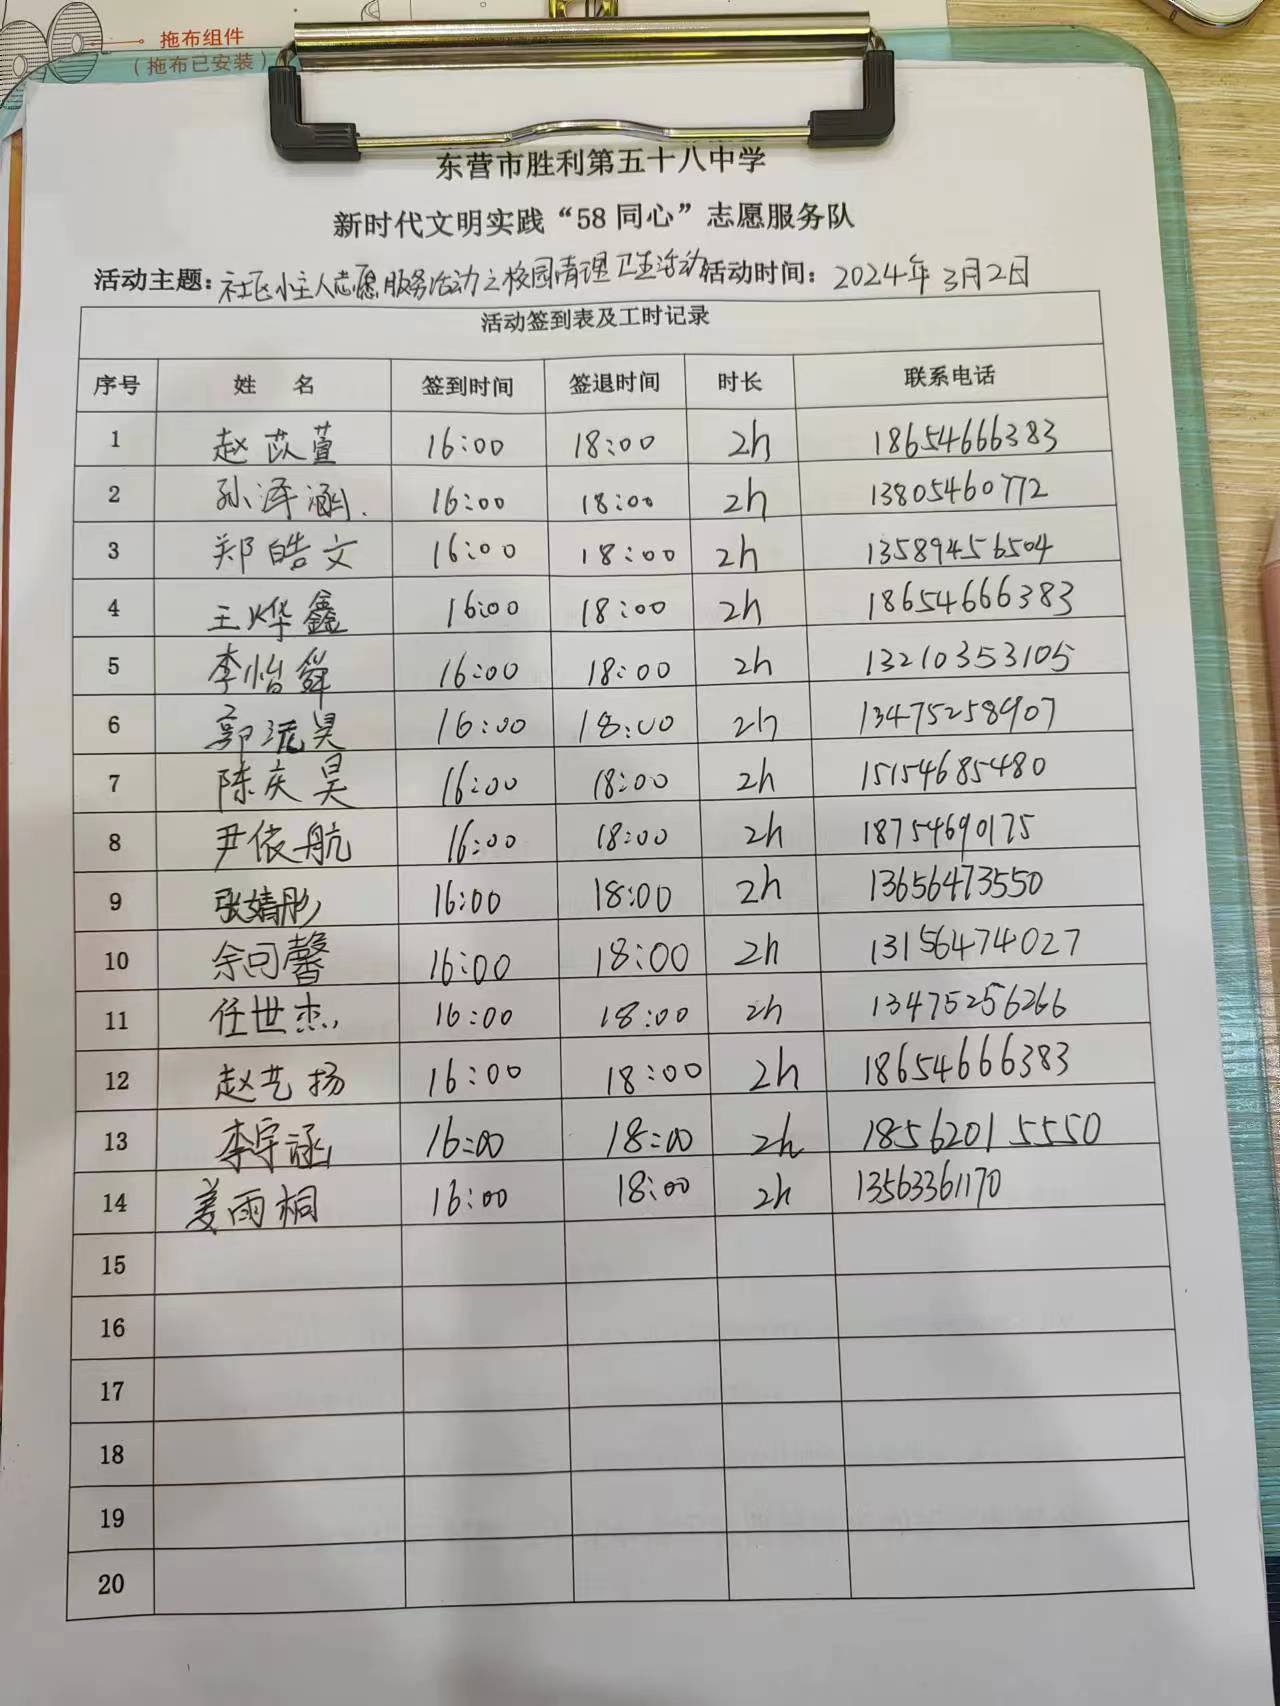 拖布组件
（拖布已安装）
东营市胜利第五十八中学
新时代文明实践“58同心”志愿服务队
活动主题：社区小主人志愿服务活动之校园清理卫生活动 活动时间：2024年3月2日
活动签到表及工时记录
序号 姓 名 签到时间 签退时间 时长 联系电话
1 赵苡萱 16:00 18:00 2h 18654666383
2 孙泽涵. 16:00 18:00 2h 13805460772
3 郑皓文 16:00 18:00 2h 13589456504
4 王烨鑫 16:00 18:00 2h 18654666383
5 李怡舜 16:00 18:00 2h 13210353105
6 郭流昊 16:00 18:00 2h 13475258907
7 陈庆昊 16:00 18:00 2h 15154685480
8 尹依航 16:00 18:00 2h 18754690175
9 张婧彤 16:00 18:00 2h 13656473550
10 余可馨 16:00 18:00 2h 13156474027
11 任世杰 16:00 18:00 2h 13475256266
12 赵艺扬 16:00 18:00 2h 18654666383
13 李宇涵 16:00 18:00 2h 18562015550
14 姜雨桐 16:00 18:00 2h 13563361170
15
16
17
18
19
20